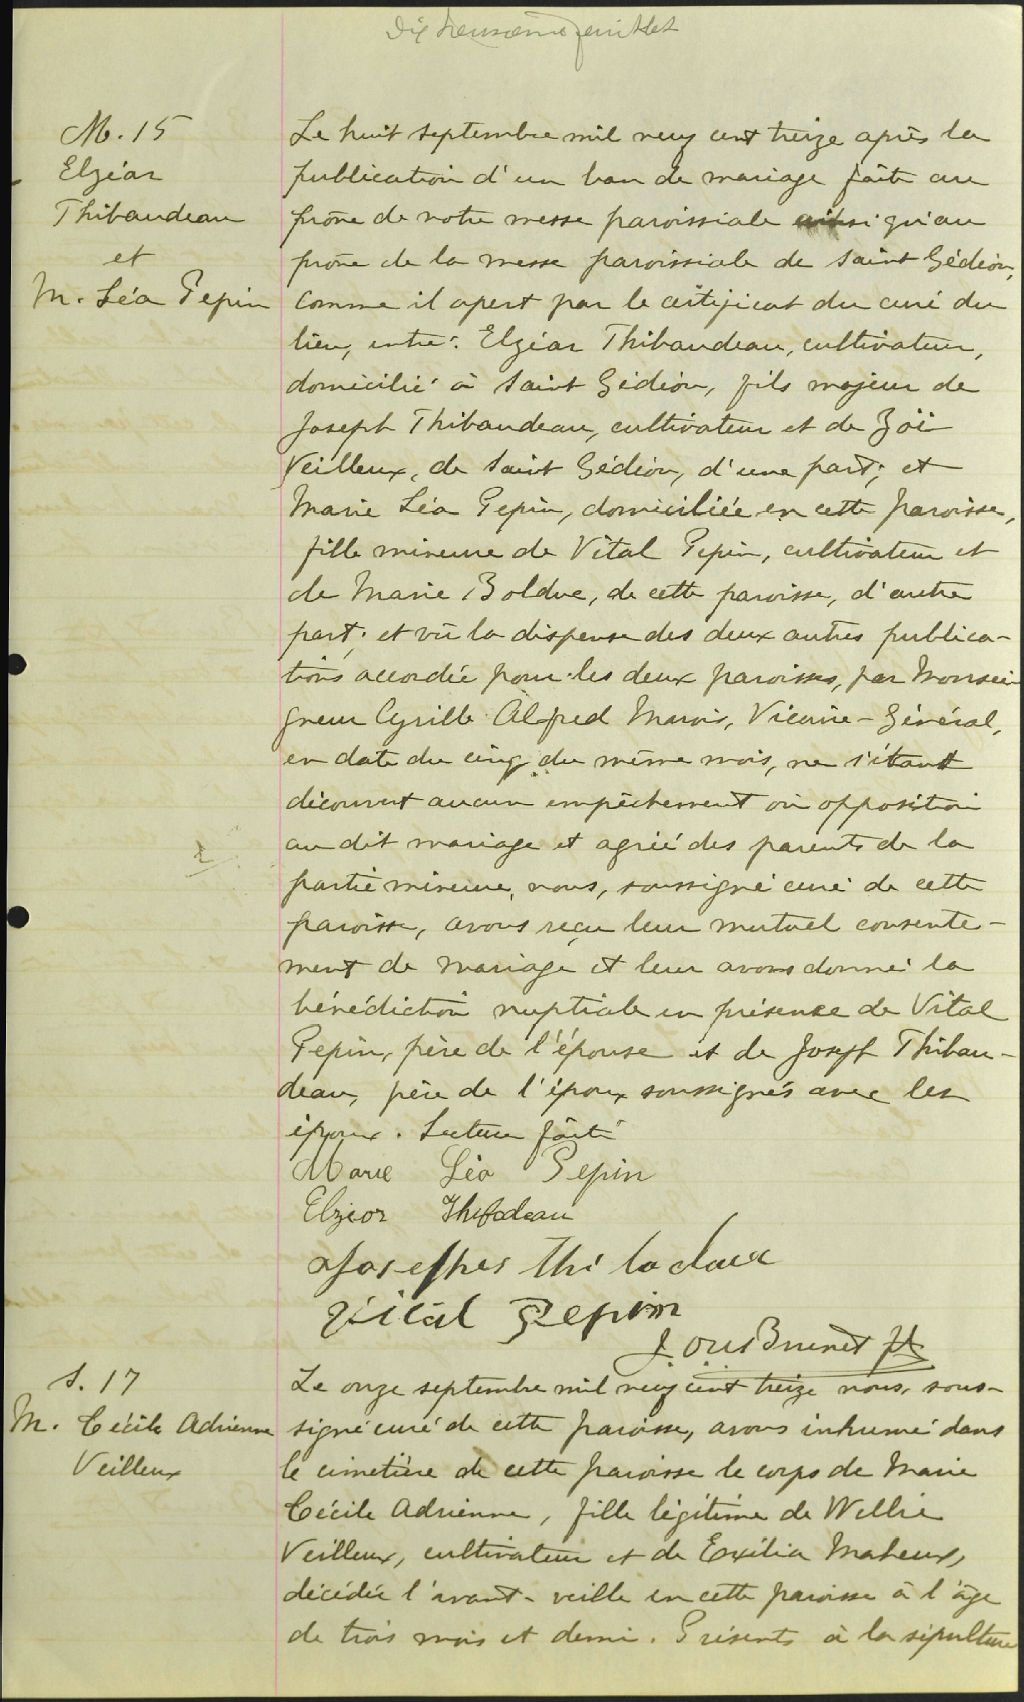 Dix neuvième feuillet
M. 15
Elzéar
Thibaudeau
et
M. Léa Pepin
Le huit septembre mil neuf cent treize après la
publication d'un ban de mariage faite au
prône de notre messe paroissiale ainsi qu'au
prône de la messe paroissiale de Saint Gédéon,
comme il apert par le certificat du curé du
lieu, entre: Elzéar Thibaudeau, cultivateur,
domicilié à Saint Gédéon, fils majeur de
Joseph Thibaudeau, cultivateur et de Zoë
Veilleux, de Saint Gédéon, d'une part; et
Marie Léa Pepin, domiciliée en cette paroisse,
fille mineure de Vital Pepin, cultivateur et
de Marie Bolduc, de cette paroisse, d'autre
part; et vû la dispense des deux autres publica-
tions accordée pour les deux paroisses, par Monsei
gneur Cyrille Alfred Marois, Vicaire-Général,
en date du cinq du même mois, ne s'étant
découvert aucun empêchement où opposition
au dit mariage et agréé des parents de la
partie mineure, nous, soussigné curé de cette
paroisse, avons reçu leur mutuel consente-
ment de mariage et leur avons donné la
bénédiction nuptiale en présence de Vital
Pepin, père de l'épouse et de Joseph Thibau-
deau, père de l'époux soussignés avec les
époux. Lecture faite
Marie Léa Pepin
Elzear Thibodeau
Vital Pepin
S. 17
M. Cécile Adrienne
Veilleux
Le onze septembre mil neuf cent treize nous, sous-
signé curé de cette paroisse, avons inhumé dans
le cimetière de cette paroisse le corps de Marie
Cécile Adrienne, fille légitime de Willie
Veilleux, cultivateur et de Exilia Maheux,
décédée l'avant-veille en cette paroisse à l'âge
de trois mois et demi. Présents à la sépulture